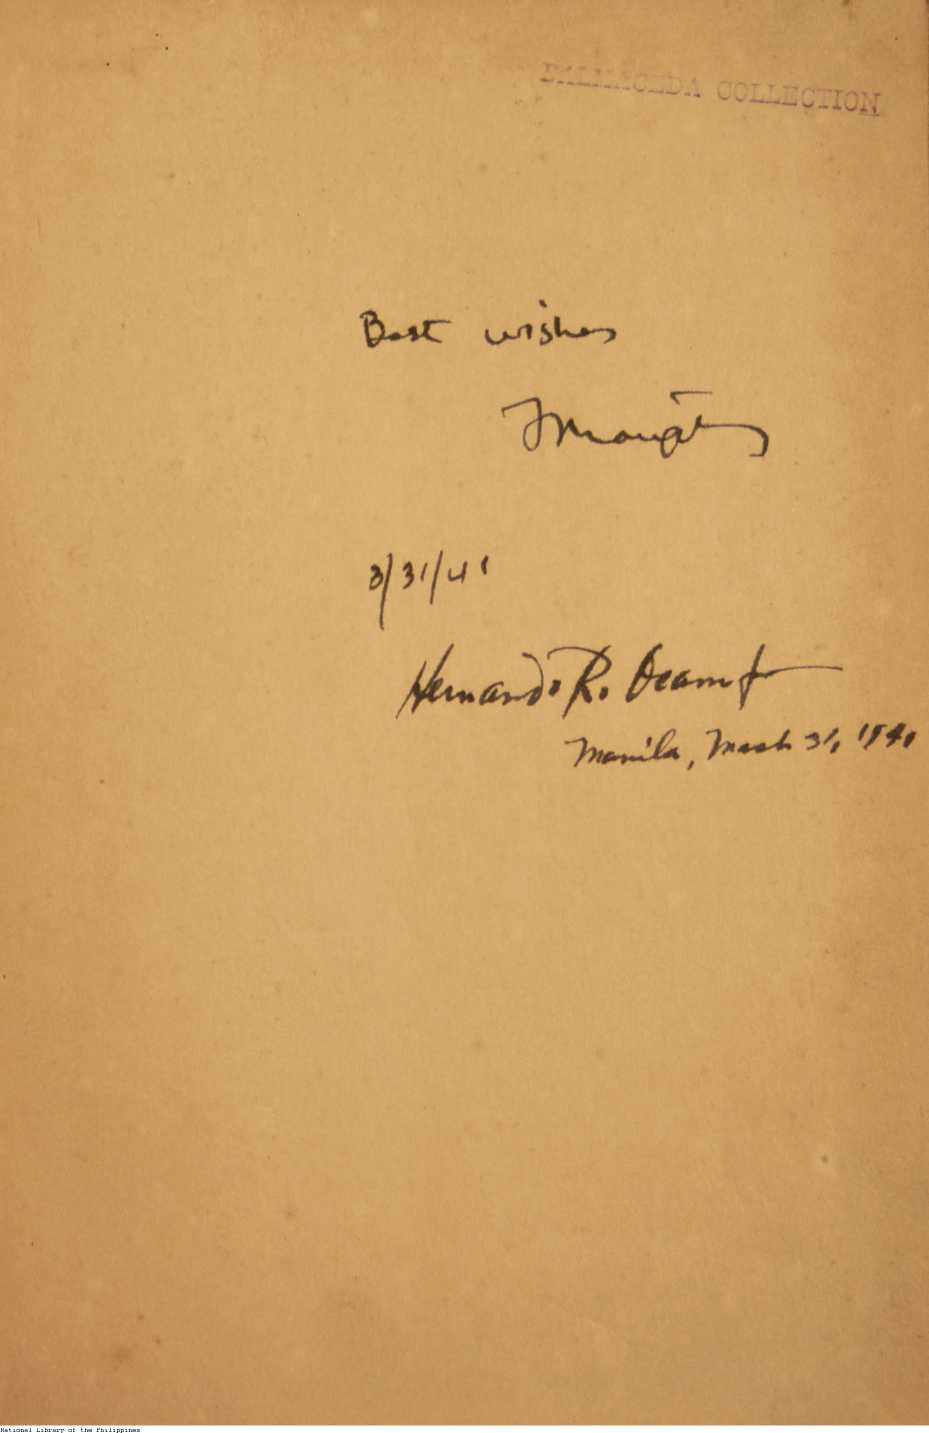 BALMACEDA COLLECTION
Best wishes
3/31/41
Hernando R. Ocampo
Manila, March 31, 1941
National Library of the Philippines